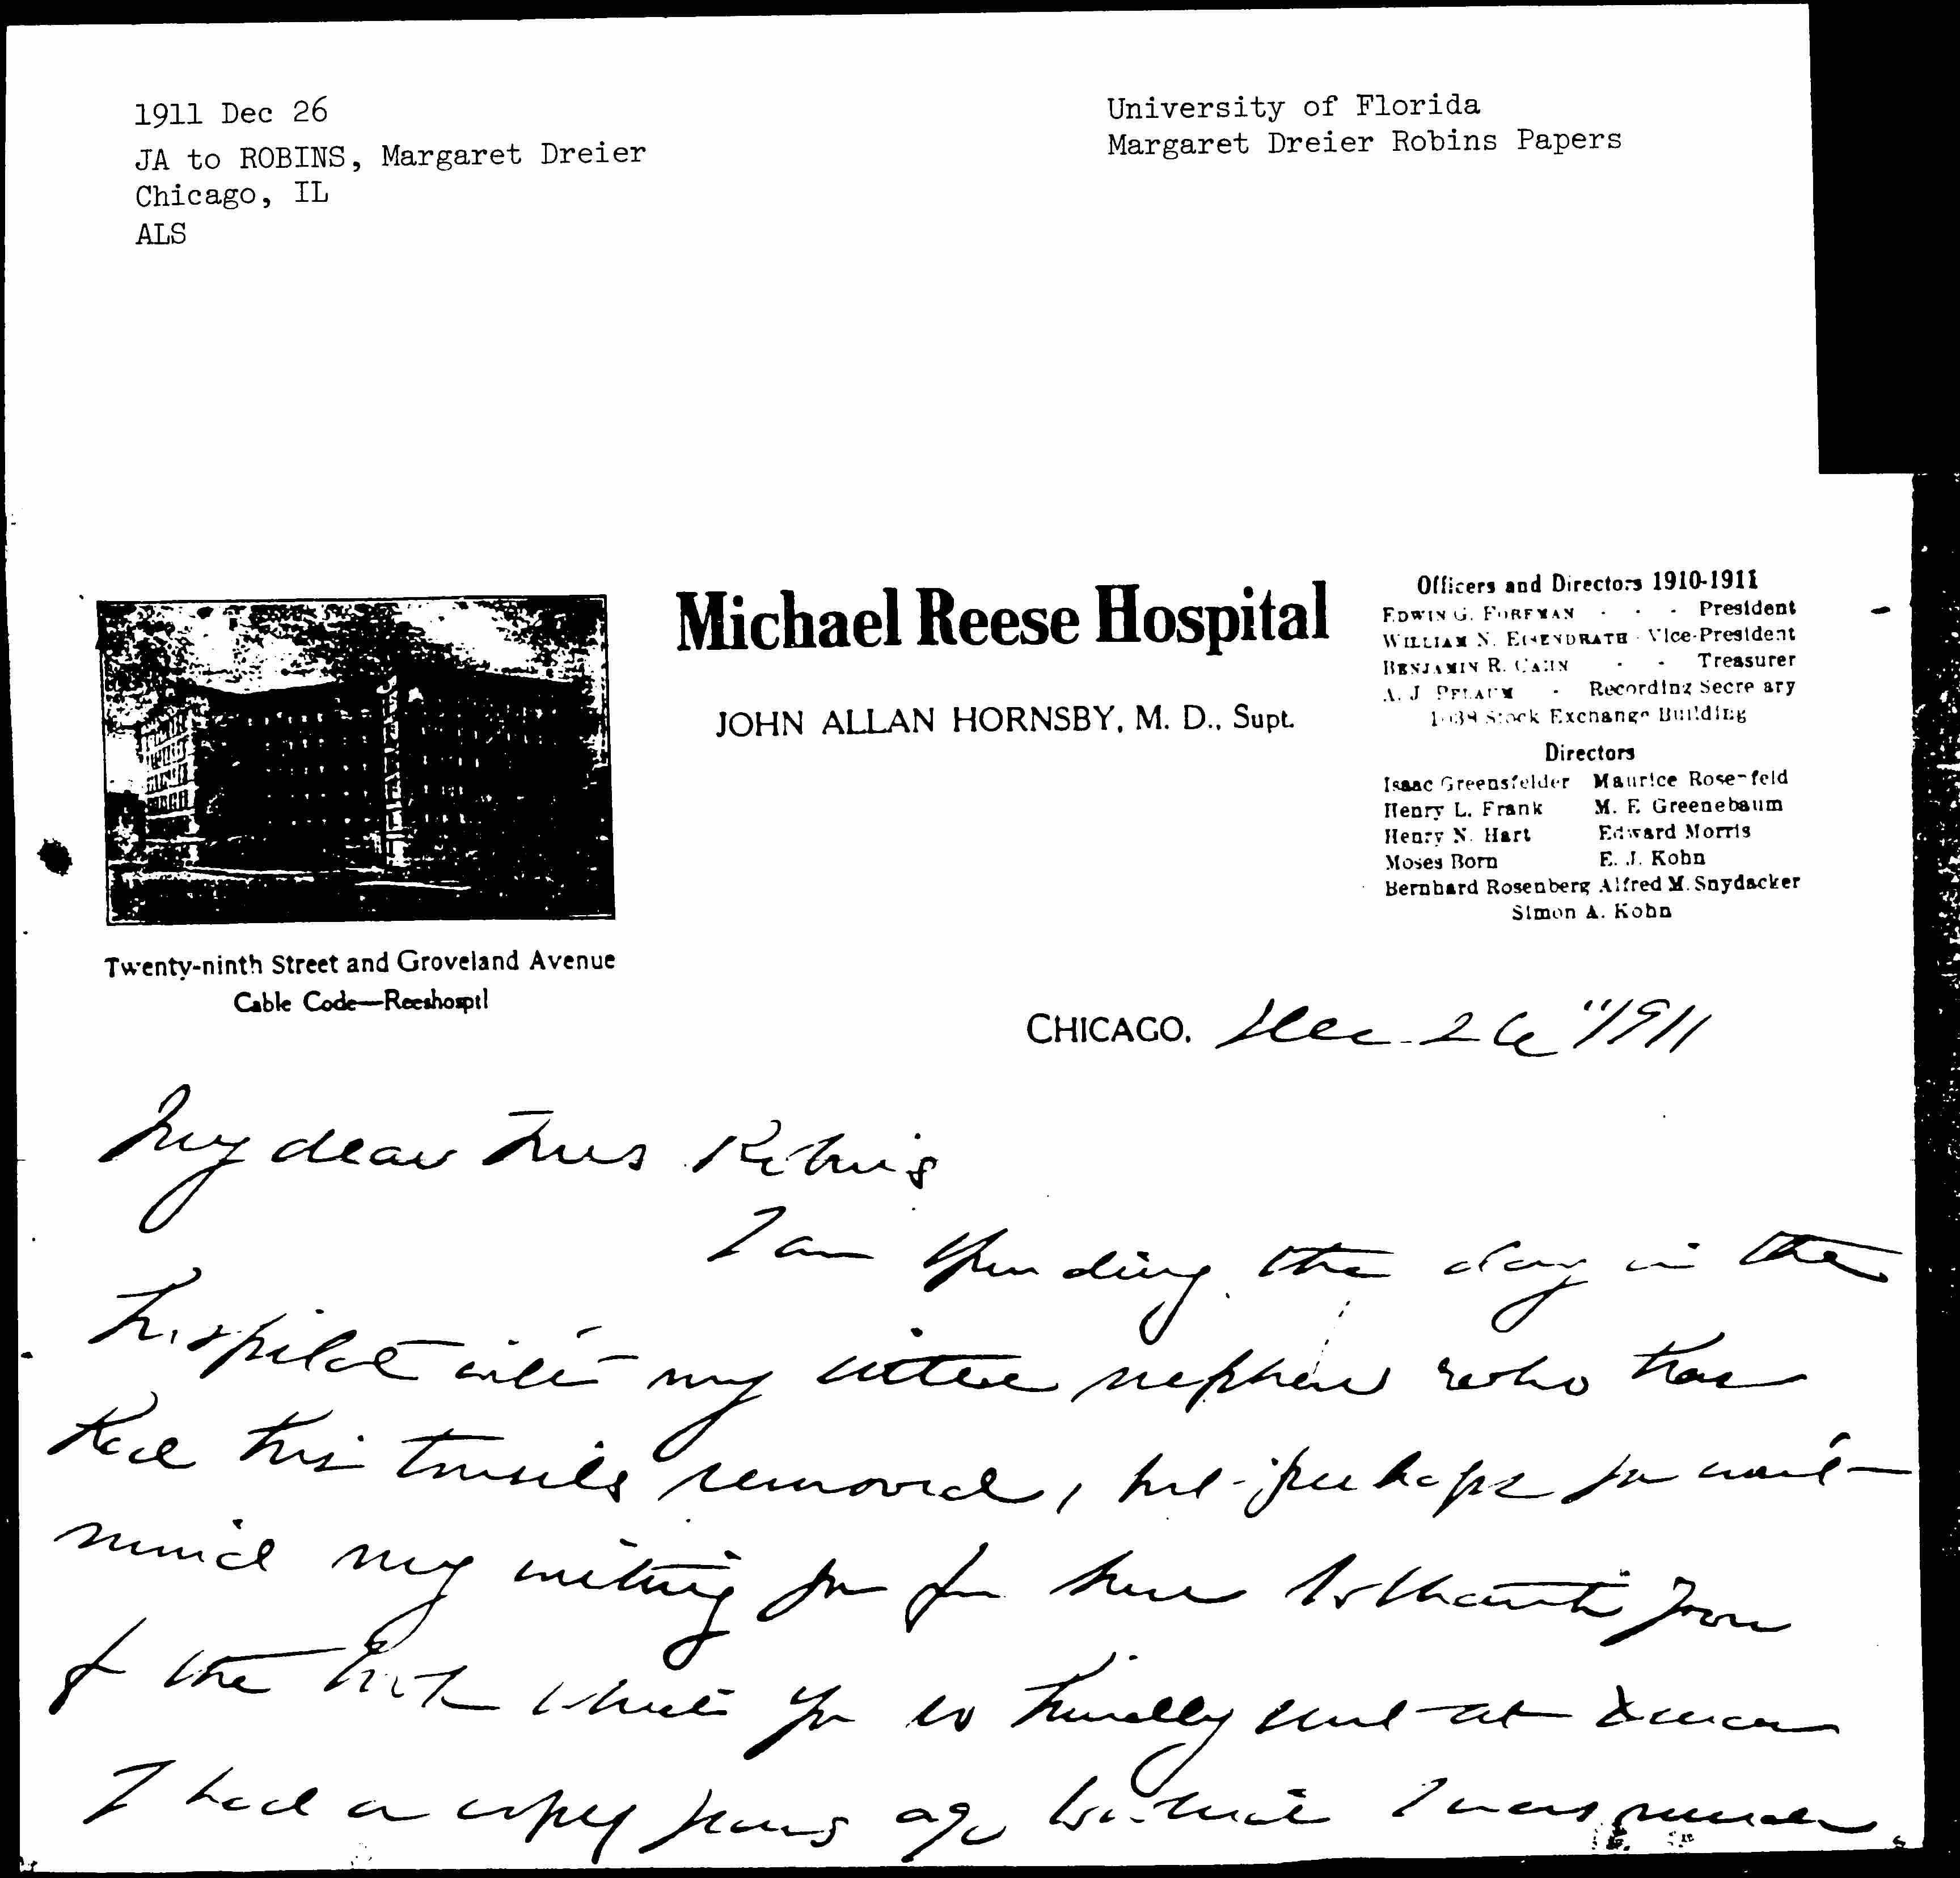 1911 Dec 26
JA to ROBINS, Margaret Dreier
Chicago, IL
ALS
University of Florida
Margaret Dreier Robins Papers
Michael Reese Hospital
JOHN ALLAN HORNSBY, M. D., Supt.
Officers and Directors 1910-1911
EDWIN G. FOREMAN - - - President
WILLIAM N. EISENDRATH - Vice-President
BENJAMIN R. CAHN - - Treasurer
A. J. PFLAUM - Recording Secre ary
Stock Exchange Building
Directors
Isaac Greensfelder Maurice Rosenfeld
Henry L. Frank M. E. Greenebaum
Henry N. Hart Edward Morris
Moses Born E. J. Kohn
Bernhard Rosenberg Alfred M. Snydacker
Simon A. Kohn
Twenty-ninth Street and Groveland Avenue
Cable Code—Reeshosptl
CHICAGO, Dec. 26" 1911
My dear Mrs Robins
I am spending the day in the
hospital with my little nephew who has
had his tonsils removed, but perhaps you won't
mind my writing you from here to thank you
for the book which you so kindly sent at Xmas
I had a copy years ago to which I was much